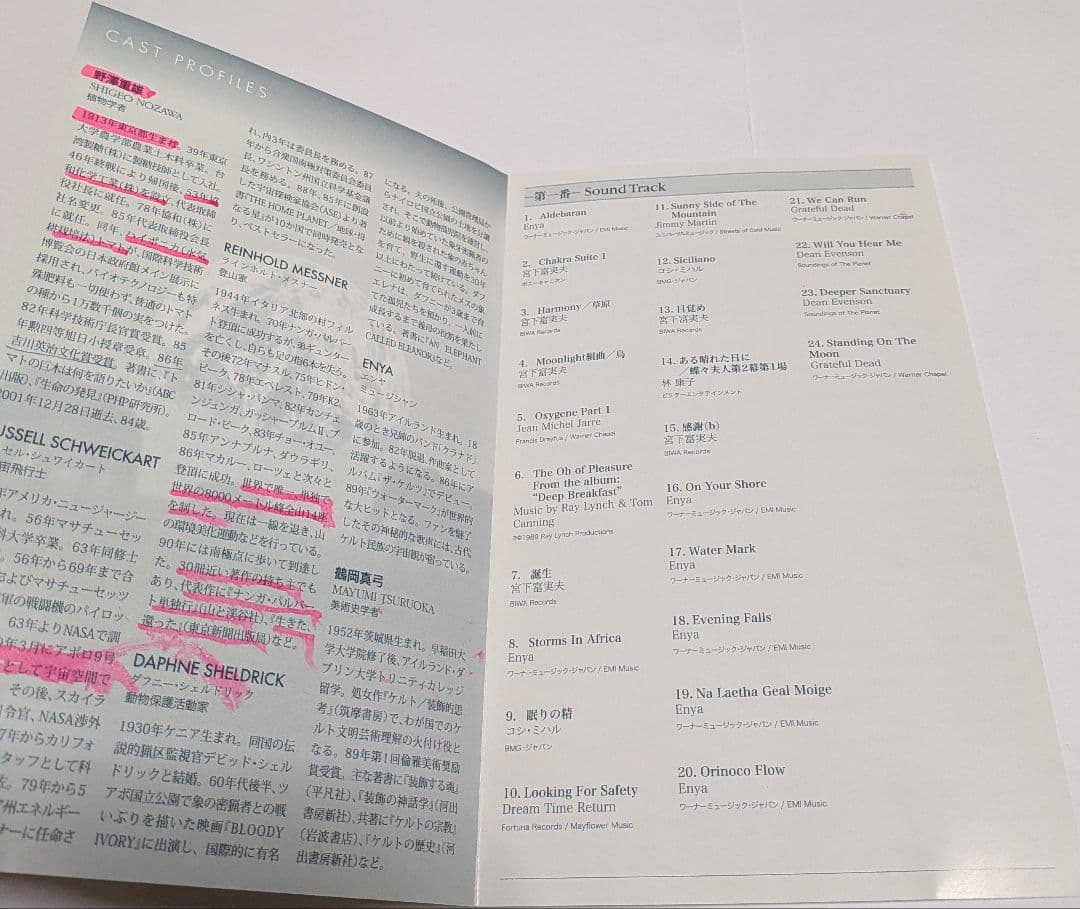 CAST PROFILES
野澤重雄
SHIGEO NOZAWA
植物学者
1913年東京都生まれ。39年東京
大学農学部農業土木科卒業。台
湾製糖(株)に製糖技師として入社。
46年終戦により帰国後、53年協
和化学工業(株)を設立、代表取締
役社長に就任。78年協和(株)に
社名変更。85年代表取締役会長
に就任。同年、ハイポニカ(水気
耕栽培法)トマトが、国際科学技術
博覧会の日本政府館メイン展示に
採用され、バイオテクノロジーも特
殊肥料も一切使わず、普通のトマト
の種から1万数千個の実をつけた。
82年科学技術庁長官賞受賞。85
年勲四等旭日小授章受章。86年
吉川英治文化賞受賞。著書に、『ト
マトの巨木は何を語りたいか』(ABC
出版)、『生命の発見』(PHP研究所)。
2001年12月28日逝去、84歳。
USSELL SCHWEICKART
セル・シュワイカート
宙飛行士
年アメリカ・ニュージャージー
れ。56年マサチューセッ
科大学卒業。63年同修士
。56年から69年まで合
およびマサチューセッツ
軍の戦闘機のパイロッ
63年よりNASAで訓
9年3月にアポロ9号
として宇宙空間で
その後、スカイラ
司令官、NASA渉外
7年からカリフォ
タッフとして科
佐。79年から5
州エネルギー
ナーに任命さ
れ、内3年は委員長を務める。87
年から合衆国南極対策委員会委員
長、ワシントン州国立科学基金議
長を務める。88年、85年に創設
した宇宙探検家協会(ASE)より著
書『THE HOME PLANET/地球・母
なる星』が10カ国で同時発売とな
り、ベストセラーになった。
REINHOLD MESSNER
ラインホルト・メスナー
登山家
1944年イタリア北部の村フィル
ネス生まれ。70年ナンガ・パルバッ
ト登頂に成功するが、弟ギュンター
を亡くし、自らも足の指6本を失う。
その後72年マナスル、75年ヒドン・
ピーク、78年エベレスト、79年K2
81年シシャ・パンマ、82年カンチェ
ンジュンガ、ガッシャーブルムⅡ、ブ
ロード・ピーク、83年チョー・オユー、
85年アンナプルナ、ダウラギリ、
86年マカルー、ローツェと次々と
登頂に成功。世界で唯一、単独で
世界の8000メートル峰全山14座
を制した。現在は一線を退き、山
の環境美化運動などを行っている。
90年には南極点に歩いて到達し
た。30冊近い著作の持ち主でも
あり、代表作に『ナンガ・パルバー
ト単独行』(山と渓谷社)、『生きた、
還った』(東京新聞出版局)など。
DAPHNE SHELDRICK
ダフニー・シェルドリック
動物保護活動家
1930年ケニア生まれ。同国の伝
説的猟区監視官デビッド・シェル
ドリックと結婚。60年代後半、ツ
アボ国立公園で象の密猟者との戦
いぶりを描いた映画『BLOODY
IVORY』に出演し、国際的に有名
になる。夫の死後、公園管理局か
らナイロビ国立公園の土地を分譲
され、そこで動物孤児院を運営し、
以前より始めていた象牙密猟者の
ために親を殺された象の赤ちゃん
を育て、野生に還す運動を30年
以上にわたって続けている。ダフ
ニーに初めて育てられたメスの象、
エレナは、ダフニーが3歳まで育
てた孤児たちを預かり、一人前に
成長するまで養母の役割を果たし
ている。著書に『AN ELEPHANT
CALLED ELEANOR』など。
ENYA
エンヤ
ミュージシャン
1963年アイルランド生まれ。18
歳のとき兄姉のバンド『クラナド』
に参加。82年脱退、作曲家として
活躍するようになる。86年にア
ルバム『ザ・ケルツ』でデビュー。
89年『ウォーターマーク』が世界的
な大ヒットとなる。ファンを魅了
したその神秘的な歌声には、古代
ケルト民族の宇宙観が宿っている。
鶴岡真弓
MAYUMI TSURUOKA
美術史学者
1952年茨城県生まれ。早稲田大
学大学院修了後、アイルランド・ダ
ブリン大学トリニティ・カレッジ
留学。処女作『ケルト/装飾的思
考』(筑摩書房)で、わが国でのケ
ルト文明芸術理解の火付け役と
なる。89年第1回倫雅美術奨励
賞受賞。主な著書に『装飾する魂』
(平凡社)、『装飾の神話学』(河出
書房新社)、共著に『ケルトの宗教』
(岩波書店)、『ケルトの歴史』(河
出書房新社)など。
—第一番— Sound Track
1. Aldebaran
Enya
ワーナーミュージック・ジャパン / EMI Music
2. Chakra Suite 1
宮下富実夫
ポニーキャニオン
3. Harmony／草原
宮下富実夫
BIWA Records
4. Moonlight組曲／鳥
宮下富実夫
BIWA Records
5. Oxygene Part 1
Jean Michel Jarre
Francis Dreyfus / Warner Chapel
6. The Oh of Pleasure
From the album:
"Deep Breakfast"
Music by Ray Lynch & Tom
Canning
℗©1989 Ray Lynch Productions
7. 誕生
宮下富実夫
BIWA Records
8. Storms In Africa
Enya
ワーナーミュージック・ジャパン / EMI Music
9. 眠りの精
コシ・ミハル
BMG・ジャパン
10. Looking For Safety
Dream Time Return
Fortuna Records / Mayflower Music
11. Sunny Side of The
Mountain
Jimmy Martin
ユニバーサルミュージック / Streets of Gold Music
12. Siciliano
コシ・ミハル
BMG・ジャパン
13. 目覚め
宮下富実夫
BIWA Records
14. ある晴れた日に
／蝶々夫人第2幕第1場
林 康子
ビクターエンタテインメント
15. 感謝(b)
宮下富実夫
BIWA Records
16. On Your Shore
Enya
ワーナーミュージック・ジャパン / EMI Music
17. Water Mark
Enya
ワーナーミュージック・ジャパン / EMI Music
18. Evening Falls
Enya
ワーナーミュージック・ジャパン / EMI Music
19. Na Laetha Geal Moige
Enya
ワーナーミュージック・ジャパン / EMI Music
20. Orinoco Flow
Enya
ワーナーミュージック・ジャパン / EMI Music
21. We Can Run
Grateful Dead
ワーナーミュージック・ジャパン / Warner Chapel
22. Will You Hear Me
Dean Evenson
Soundings of The Planet
23. Deeper Sanctuary
Dean Evenson
Soundings of The Planet
24. Standing On The
Moon
Grateful Dead
ワーナーミュージック・ジャパン / Warner Chapel